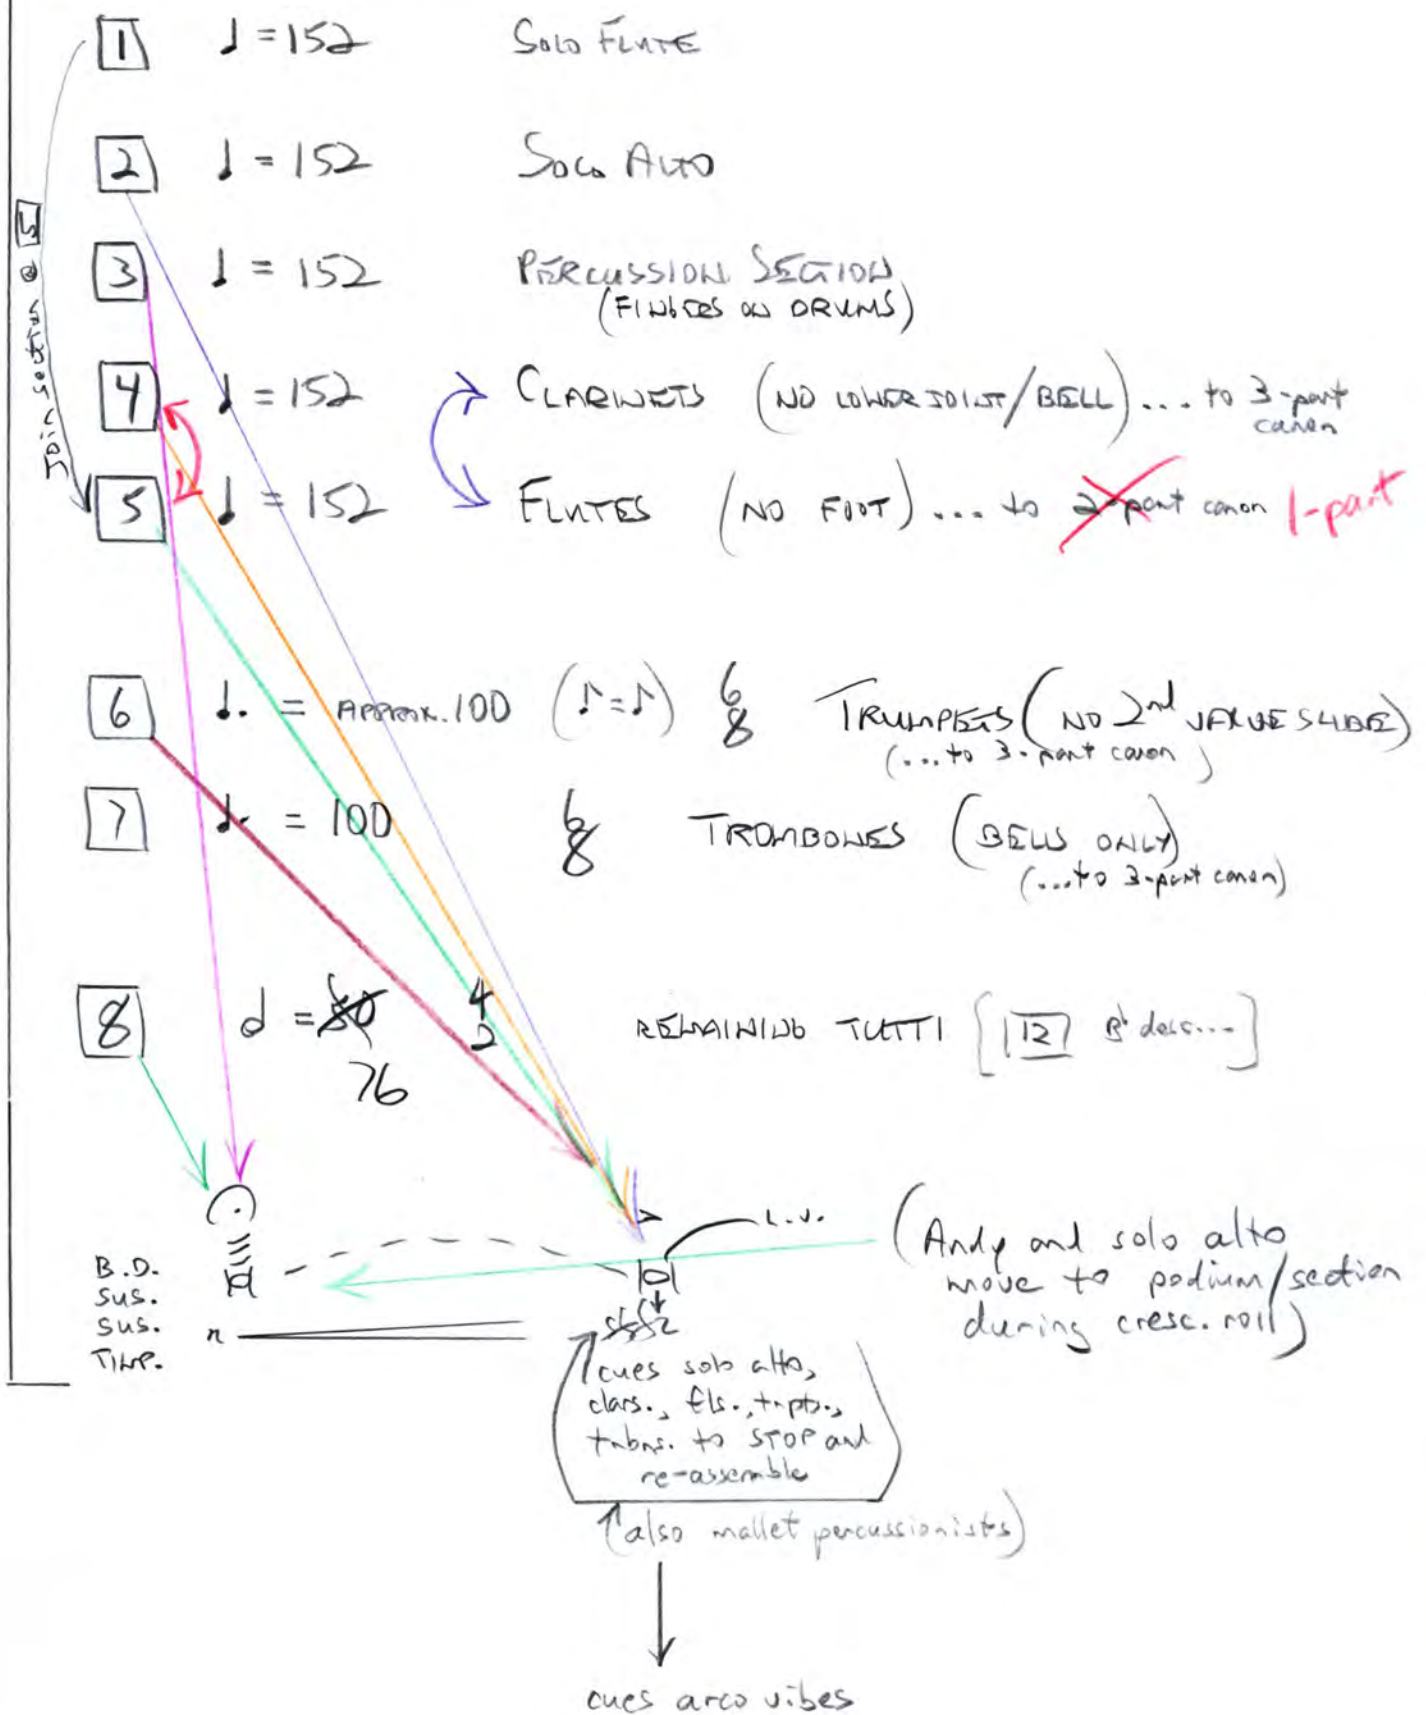 1 ♩ = 152 SOLO FLUTE
2 ♩ = 152 SOLO ALTO
3 ♩ = 152 PERCUSSION SECTION
(FINGERS ON DRUMS)
4 ♩ = 152 CLARINETS (NO LOWER JOINT/BELL) ... to 3-part
canon
Join section @ 5
5 ♩ = 152 FLUTES (NO FOOT) ... to 2-part canon 1-part
6 ♩. = APPROX. 100 (♪=♪) 6/8 TRUMPETS (NO 2nd VALVE SLIDE)
(...to 3-part canon)
7 ♩. = 100 6/8 TROMBONES (BELLS ONLY)
(...to 3-part canon)
8 𝅗𝅥 = 4/2 REMAINING TUTTI [12 B♭ desc...]
76
L.V.
(Andy and solo alto
move to podium/section
during cresc. roll)
B.D.
SUS.
SUS.
TIMP.
n
cues solo alto,
clars., fls., trpts.,
tnbns. to STOP and
re-assemble
(also mallet percussionists)
cues arco vibes